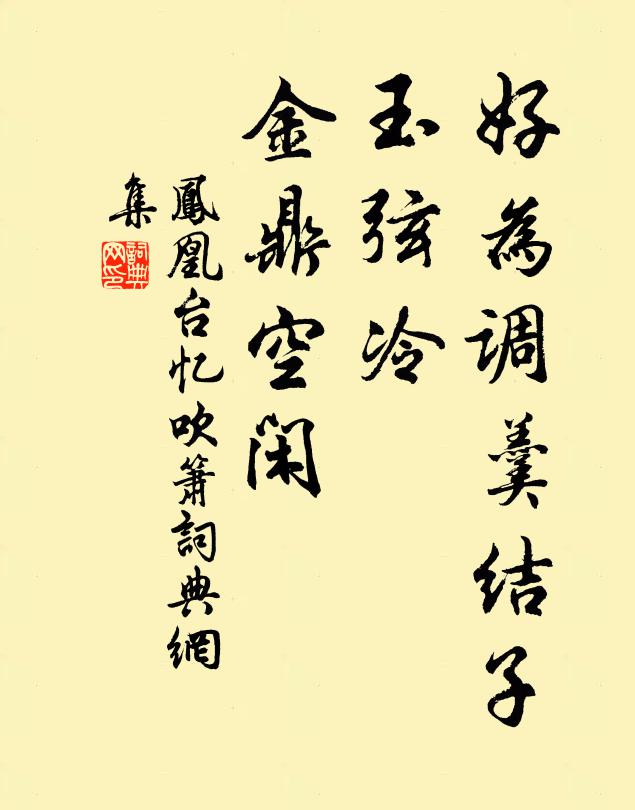 好為調羹结子
玉弦冷
金鼎空闲
鳳凰台忆吹簫詞典網
集
詞典
网印